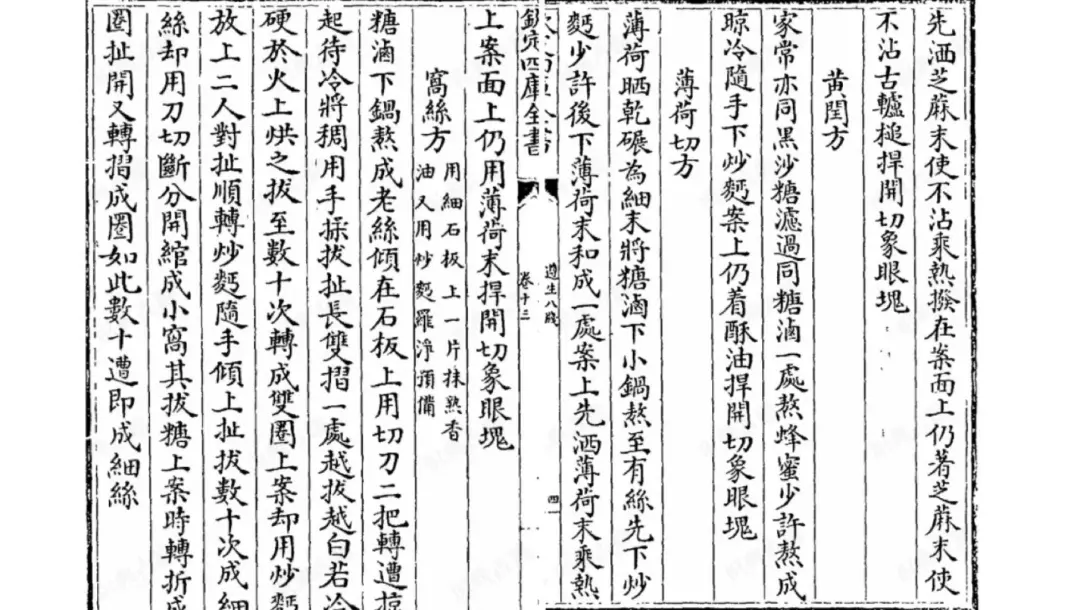 先洒芝蔴末使不沾乘熱撥在案面上仍著芝蔴末使
不沾古轤搥捍開切象眼塊
黄閏方
家常亦同黑沙糖濾過同糖滷一處熬蜂蜜少許熬成
晾冷隨手下炒麪案上仍着酥油捍開切象眼塊
薄荷切方
薄荷晒乾碾為細末將糖滷下小鍋熬至有絲先下炒
麪少許後下薄荷末和成一處案上先洒薄荷末乘熱
欽定四庫全書
遵生八牋
卷十三
四一
上案面上仍用薄荷末捍開切象眼塊
窩絲方
用細石板上一片抹熟香
油又用炒麪羅淨預備
糖滷下鍋熬成老絲傾在石板上用切刀二把轉遭掠
起待冷將稠用手揉拔扯長雙摺一處越拔越白若冷
硬於火上烘之拔至數十次轉成雙圈上案却用炒麪
放上二人對扯順轉炒麪隨手傾上扯拔數十次成細
絲却用刀切斷分開綰成小窩其拔糖上案時轉折成
圈扯開又轉摺成圈如此數十遭即成細絲